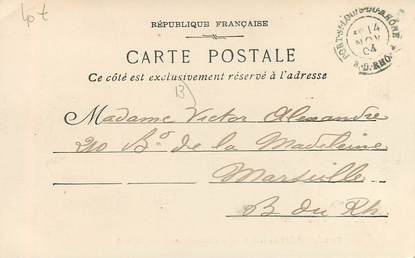 lot
RÉPUBLIQUE FRANÇAISE
CARTE POSTALE
Ce côté est exclusivement réservé à l'adresse
13
Madame Victor Alexandre
210 Bᵒ de la Madeleine
Marseille
B du Rh
PORT-ST-LOUIS-DU-RHÔNE
14
NOV
04
B.-D.-RHÔNE